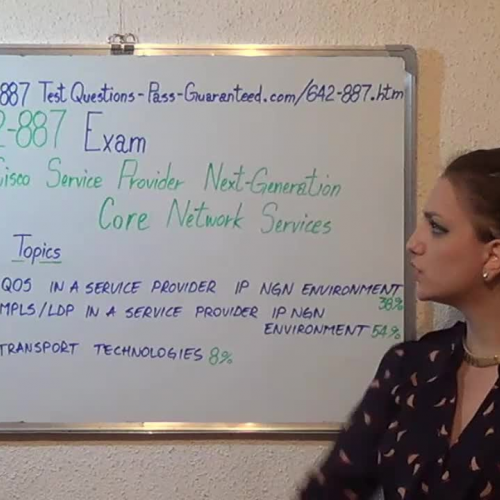 887 Test Questions - Pass-Guaranteed.com/642-887.htm
2-887 Exam
Cisco Service Provider Next-Generation
Core Network Services
Topics
QOS IN A SERVICE PROVIDER IP NGN ENVIRONMENT
38%
MPLS/LDP IN A SERVICE PROVIDER IP NGN
ENVIRONMENT 54%
TRANSPORT TECHNOLOGIES 8%